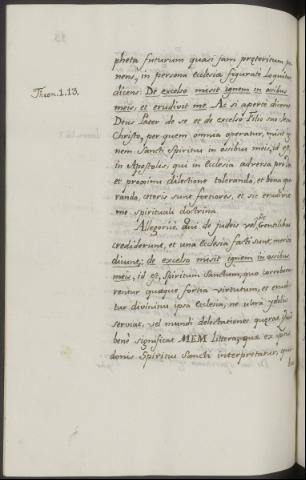 pheta futurum quasi jam præteritum po
nens, in persona ecclesiæ figurate loquitur
dicens: De excelso misit ignem in ossibus
Thren. 1.13.
meis, et erudivit me. Ac si aperte diceret
Deus Pater de se et de excelso Filio suo Jesu
Christo, per quem omnia operatur, misit ig
nem Sancti Spiritus in ossibus meis, id est,
in Apostolis, qui in ecclesia adversa pro Dei
et proximi dilectione tolerando, et bona ope
rando, cæteris sunt fortiores, et sic erudivit
me spirituali doctrina.
Allegoricè. Qui de judeis vel de Gentilibus
crediderunt, et una Ecclesia facti sunt, merito
dicunt: de excelso misit ignem in ossibus
meis, id est, Spiritum Sanctum, quo corrobora
rentur quæque fortia virtutum, et erudi
tur divinitus ipsa ecclesia, ne ultra ydolis
serviat, vel mundi delectationes quærat. Quod
bene significat MEM littera, quæ ex
donis Spiritus Sancti interpretatur, qui